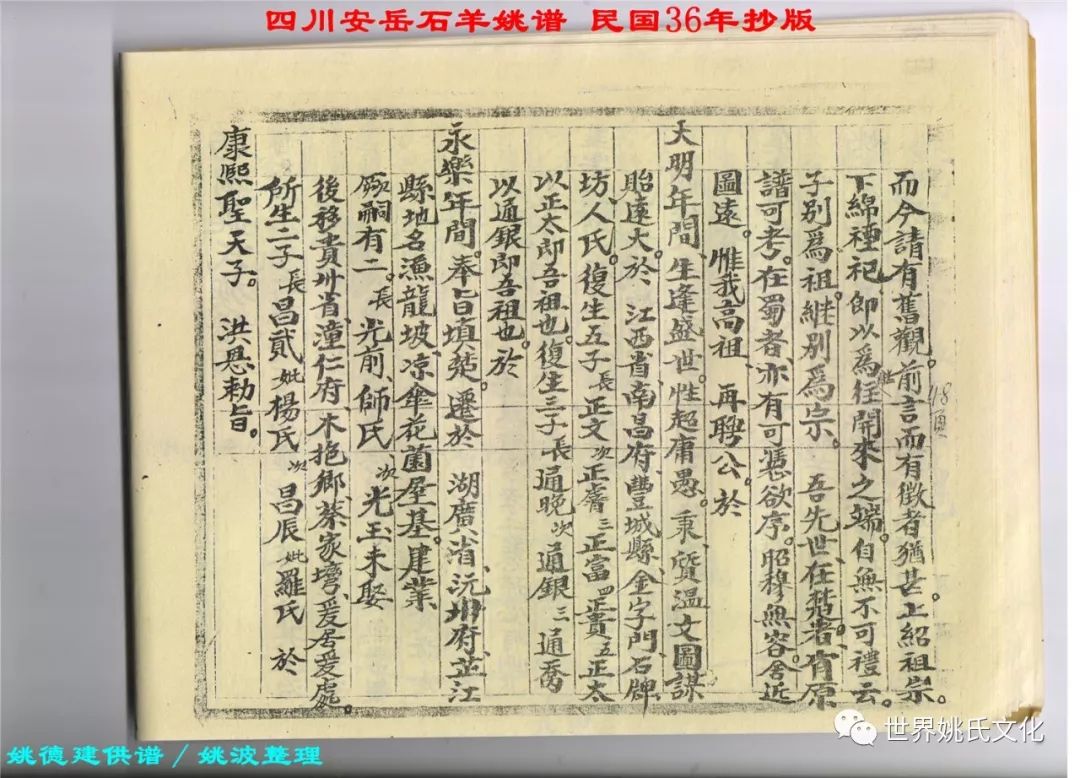 四川安岳石羊姚谱 民国36年抄版
而今請有舊觀。前言而有徵者猶甚。上紹祖宗
下綿禋祀。即以為往開來之端。自無不可禮云。
繼
48頁
子別為祖。継別為宗。 吾先世在楚者。有原
譜可考。在蜀者、亦有可憑欲序。昭穆無容舍近
圖遠。惟我高祖、再聘公。於
大明年間、生逢盛世。性超庸愚。秉、質溫文圖謀
貽遠大。於、江西省、南昌府、豐城縣、金字門、石牌
坊、人氏。復生五子長正文次正膚三正富四正貴五正太
以正太即吾祖也。復生三子長通晚次通銀三通喬
以通銀即吾祖也。於
永樂年間。奉旨填楚。遷於 湖廣省、沅州府、芷江
縣、地名漁龍坡、凉傘花菌屋基。建業、
啄嗣有二。長光前、師氏、次光玉未娶
後移貴州省、潼仁府、木抱鄉、蔡家塆、爰居爰處。
所生二子長昌貳妣楊氏次昌辰妣羅氏 於
康熙聖天子。洪恩勅旨。
世界姚氏文化
姚德建供谱/姚波整理